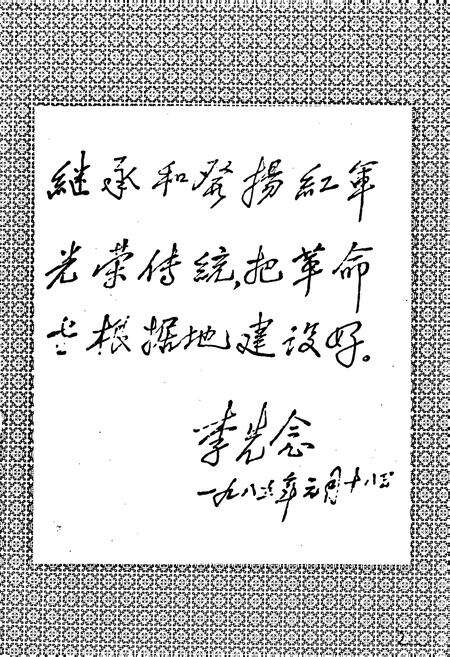 継承和發揚紅軍
光荣传統、把革命
老根据地建设好。
李先念
一九八三年元月十八日
2